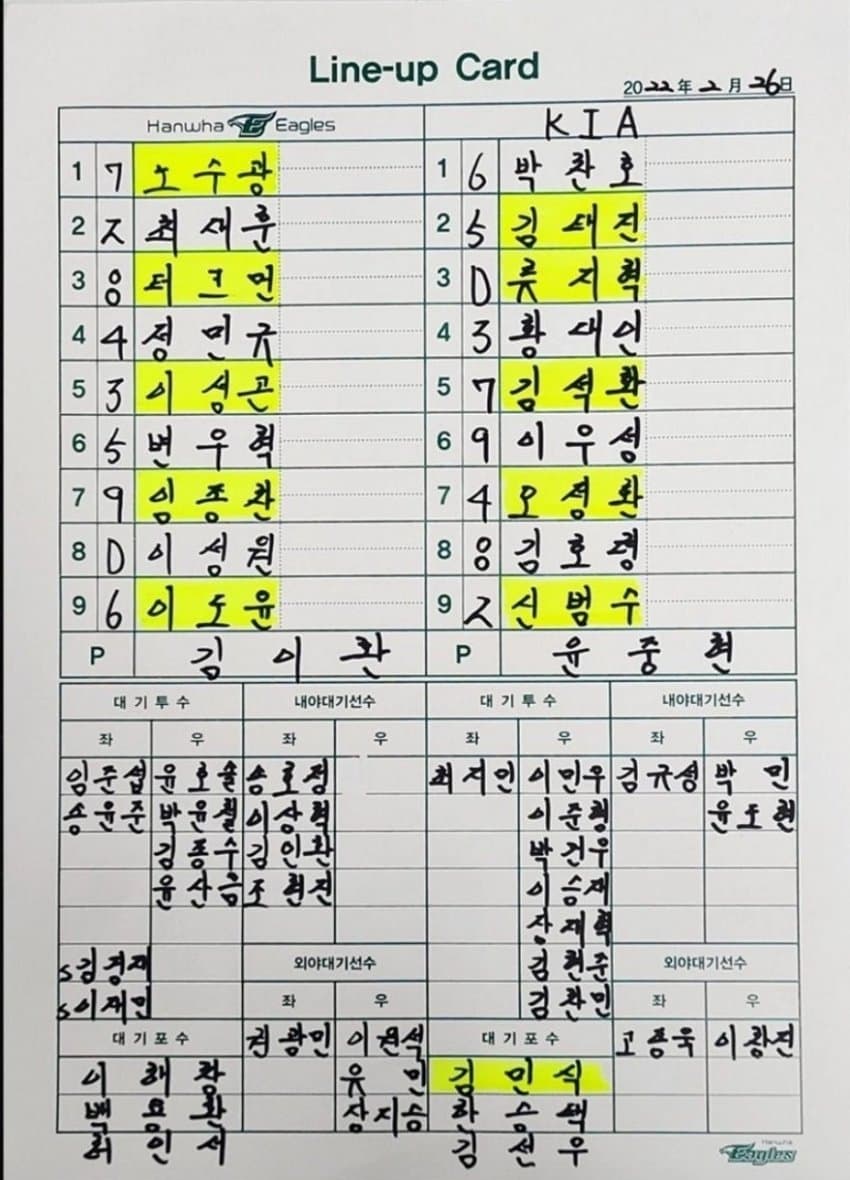 Line-up Card
2022年 2月 26日
Hanwha Eagles KIA
1 7 노수광 1 6 박찬호
2 2 최재훈 2 5 김태진
3 8 터크먼 3 D 류지혁
4 4 정민규 4 3 황대인
5 3 이성곤 5 7 김석환
6 5 변우혁 6 9 이우성
7 9 임종찬 7 4 오정환
8 D 이성원 8 8 김호령
9 6 이도윤 9 2 신범수
P 김이환 P 윤중현
대기투수 내야대기선수 대기투수 내야대기선수
좌 우 좌 우 좌 우 좌 우
임준섭 윤호솔 송호정 최지민 이민우 김규성 박민
송윤준 박윤철 이상혁 이준형 윤도현
김종수 김인환 박건우
윤산흠 조현진 이승재
장재혁
s김경재 외야대기선수 김현준 외야대기선수
s이재민 좌 우 김찬민 좌 우
대기포수 권광민 이원석 대기포수 고종욱 이창진
이해창 유민 김민식
백용환 장지승 한승택
허인서 김선우
Hanwha Eagles